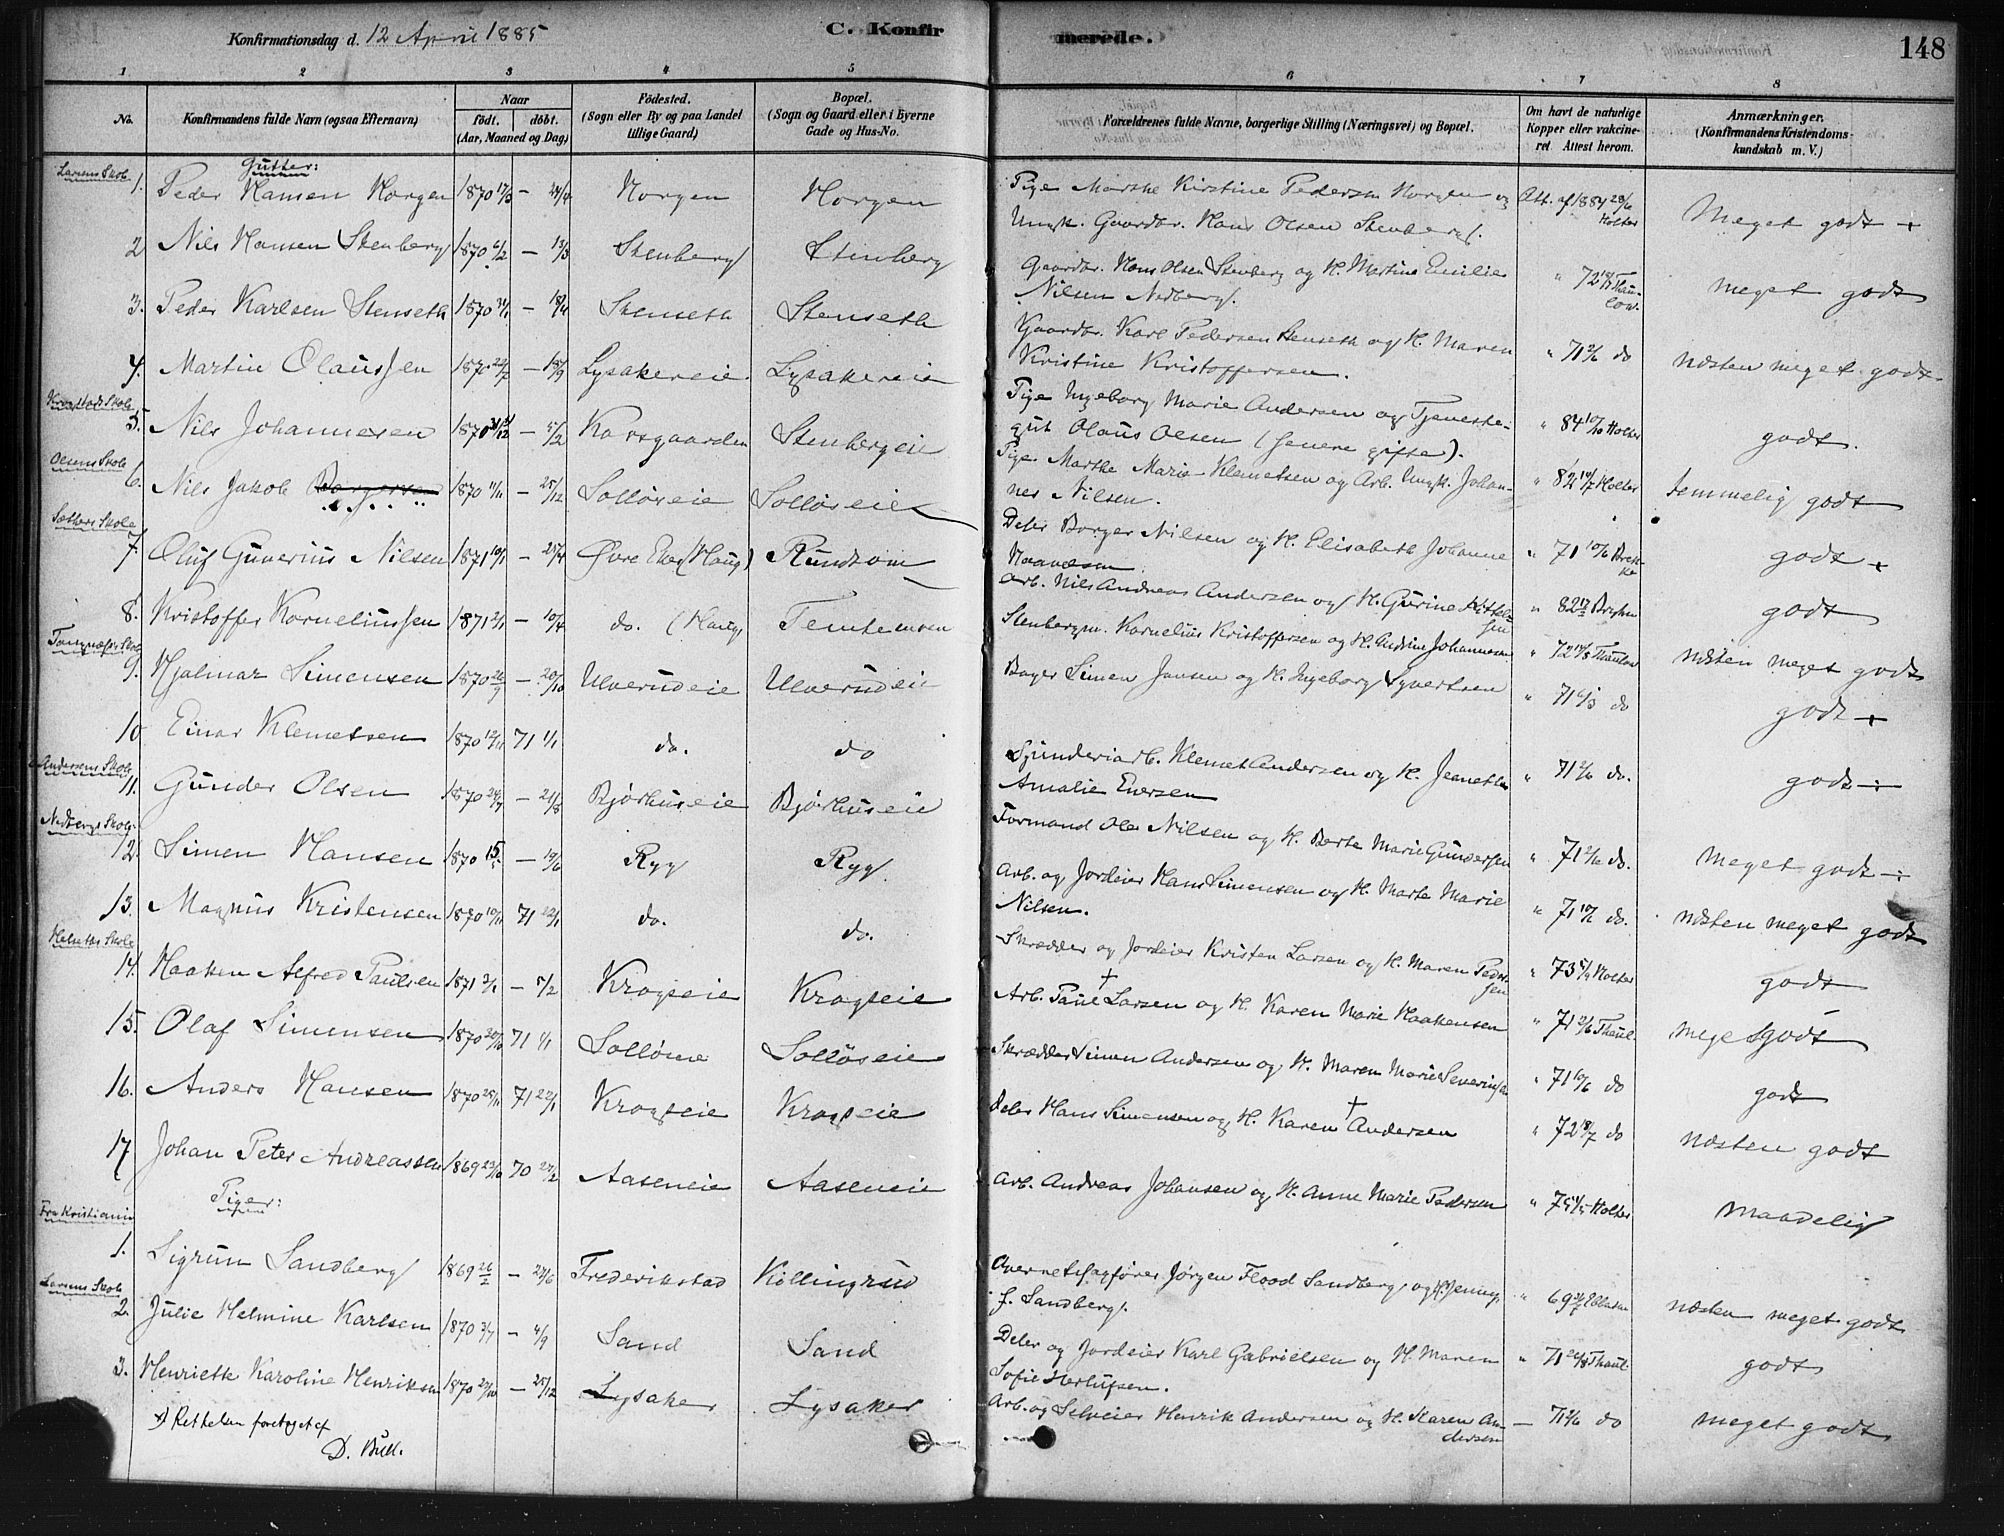 Konfirmationsdag d. 12 April 1885
C. Konfirmerede.
148
1 2 3 4 5 6 7 8
No.
Konfirmandens fulde Navn (ogsaa Efternavn)
Naar
født. døbt.
(Aar, Maaned og Dag)
Fødested.
(Sogn eller By og paa Landet tillige Gaard)
Bopæl.
(Sogn og Gaard eller i Byerne Gade og Hus-No.
Forældrenes fulde Navne, borgerlige Stilling (Næringsvei) og Bopæl.
Om havt de naturlige Kopper eller vakcineret Attest herom.
Anmærkninger.
(Konfirmandens Kristendomskundskab m. V.)
Gutter:
Larsens Skole
1. Peder Hansen Horgen 1870 17/3 — 24/4 Horgen Horgen Pige Marthe Kirstine Pedersen Horgen og Ungk. Gaardbr. Hans Olsen Stenberg. Att. af 1884 28/6 Holter Meget godt +
2 Nils Hansen Stenberg 1870 6/2 — 13/3 Stenberg Stenberg Gaardbr. Hans Olsen Stenberg og H. Martine Emilie Nilsen Nedberg. " 72 Thaulow. meget godt
3. Peder Karlsen Stenseth 1870 — 18/4 Stenseth Stenseth Gaardbr. Karl Pedersen Stenseth og H. Maren Kristine Kristoffersen. " 71 2/6 do næsten meget godt
4. Martin Olaussen 1870 — 18/9 Lysakereie Lysakereie Pige Ingeborg Marie Andersen og Tjenestegut Olaus Olsen (senere gifte). " 84 10/10 Holter godt.
5. Nils Johannesen 1870 — 5/2 Korsgaarden Stenbergeie Pige Marthe Marie Klemetsen og Arb. Ungk. Johannes Nilsen. " 82 Holter temmelig godt
Olsens Skole
6. Nils Jakob Borgersen 1870 11/11 — 25/12 Solløseie Solløseie Deler Borger Nilsen og H. Elisabeth Johanne " 71 10/6 Brekke godt +
Sethers Skole
7. Oluf Gunerius Nilsen 1871 10/1 — 25/4 Øvre Eker (Haug) Rundtom Arb. Nils Andreas Andersen og H. Gurine Kittelsen " 82 godt
8. Kristoffer Korneliussen 1871 2/1 — 10/4 do. (Haug) Stenbergm. Kornelius Kristoffersen og H. Andrine Johannesen " 72 Thaulow næsten meget godt
9. Hjalmar Simensen 1870 26/9 — 20/10 Ulverudeie Ulverudeie Bager Simen Jansen og H. Ingeborg Syvertsen " 71 6/3 do godt +
10 Einar Klemetsen 1870 12/11 71 1/1 do. do Klemet Andersen og H. Jeanette Amalie Eversen " 71 2/6 do. godt ÷
Andersens Skole
11. Gunder Olsen 1870 24/7 — 21/8 Bjørhuseie Bjørhuseie Formand Ole Nilsen og H. Berte Marie Gundersen " 71 2/6 do. meget godt ÷
Nedbergs Skole
12. Simen Hansen 1870 15/5 — 19/6 Ryg Ryg Arb. og Jordeier Hans Simensen og H. Marte Marie Nilsen. " 71 do. næsten meget godt
13. Magnus Kristensen 1870 10/11 71 22/1 do. do. Skrædder og Jordeier Kristen Larsen og H. Maren Pedersen " 73 Holter godt
14. Haaken Alfred Paulsen 1871 2/1 — 5/2 Krogseie Krogseie Arb. Paul † Larsen og H. Karen Marie Haakensen " 71 2/6 Thaul. meget godt
15. Olaf Simensen 1870 20/10 71 1/1 Solløseie Solløseie Skrædder Simen Andersen og H. Maren Marie Severinsen " 71 10/6 do godt
16. Anders Hansen 1870 25/11 71 22/1 Krogseie Krogseie Deler Hans Simensen og H. Karen † Andersen " 72 18/7 do næsten godt
17 Johan Peter Andreassen 1869 70 27/2 Aaseneie Aaseneie Arb. Andreas Johansen og H. Anne Marie Pedersen " 75 Holter maadelig
Piger:
Fra Kristiania
1. Sigrun Sandberg 1869 26/2 — 27/6 Frederikstad Kollingrud Overretssagfører Jørgen Flood Sandberg og H. Jenny f. Sandberg. " 69 næsten meget godt
Larsens Skole
2. Julie Helmine Karlsen 1870 3/7 — 4/9 Sand Sand Deler og Jordeier Karl Gabrielsen og H. Maren Sofie Herlufsen. " 71 Thaul. godt
3. Henriette Karoline Henriksen 1870 27/10 — 25/12 Lysaker Lysaker Arb. og Selveier Henrik Andersen og H. Karen Andersen — 71 2/6 do meget godt
x) Rettelsen foretaget af
D. Bull.